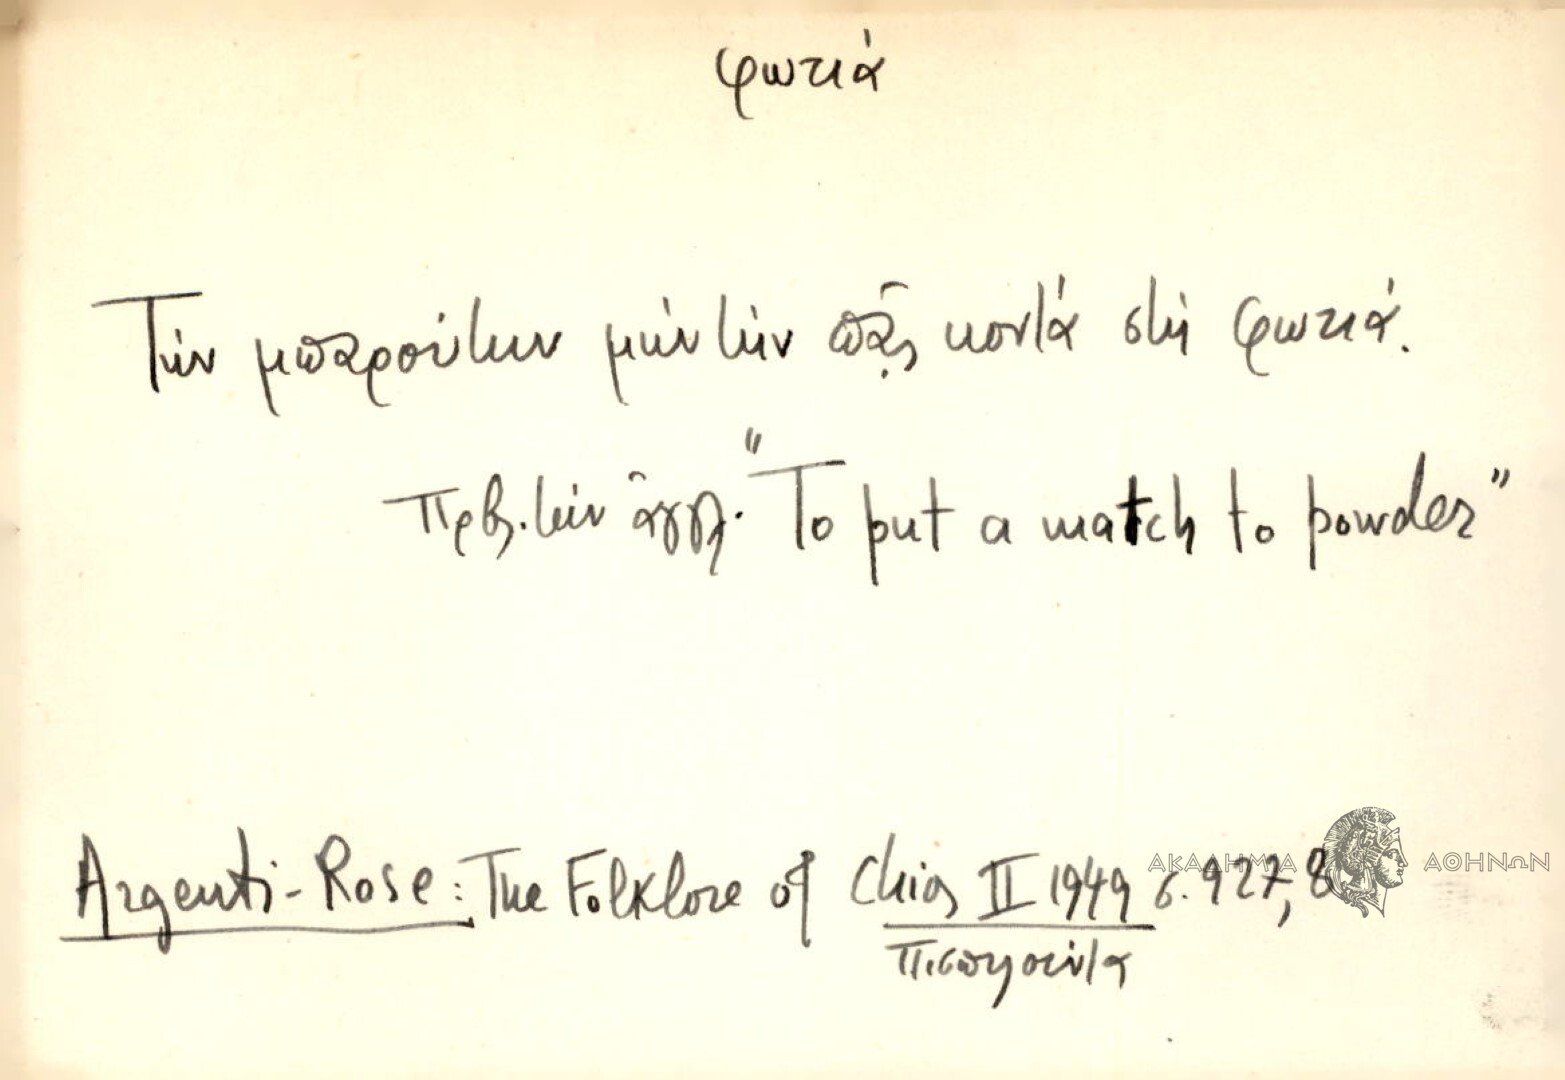 φωτιά
Τὴν μπαρούτην μὴν τὴν πᾷς κοντά στὴ φωτιά.
Πρβλ. τὴν ἀγγλ. "To put a match to powder"
Argenti-Rose: The Folklore of Chios II 1949 σ. 927, 8
ΑΚΑΔΗΜΙΑ ΑΘΗΝΩΝ